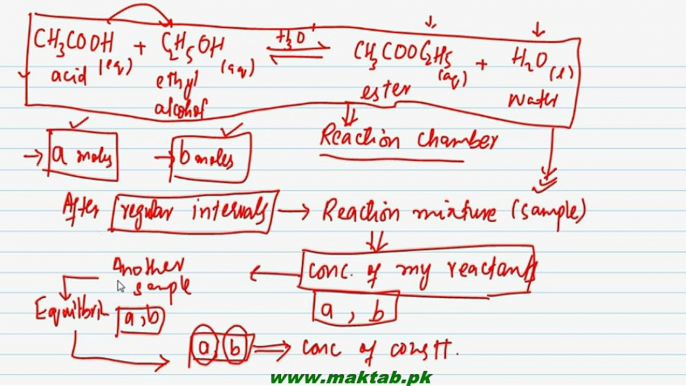 CH3COOH (aq) + C2H5OH (aq) ⇌ H3O+ CH3COOC2H5 (aq) + H2O (l)
acid ethyl alcohol ester water
a moles b moles Reaction chamber
After regular intervals → Reaction mixture (sample)
Another sample ← conc. of my reactants
Equilibri a, b a, b
a b ⇒ conc of constt.
www.maktab.pk